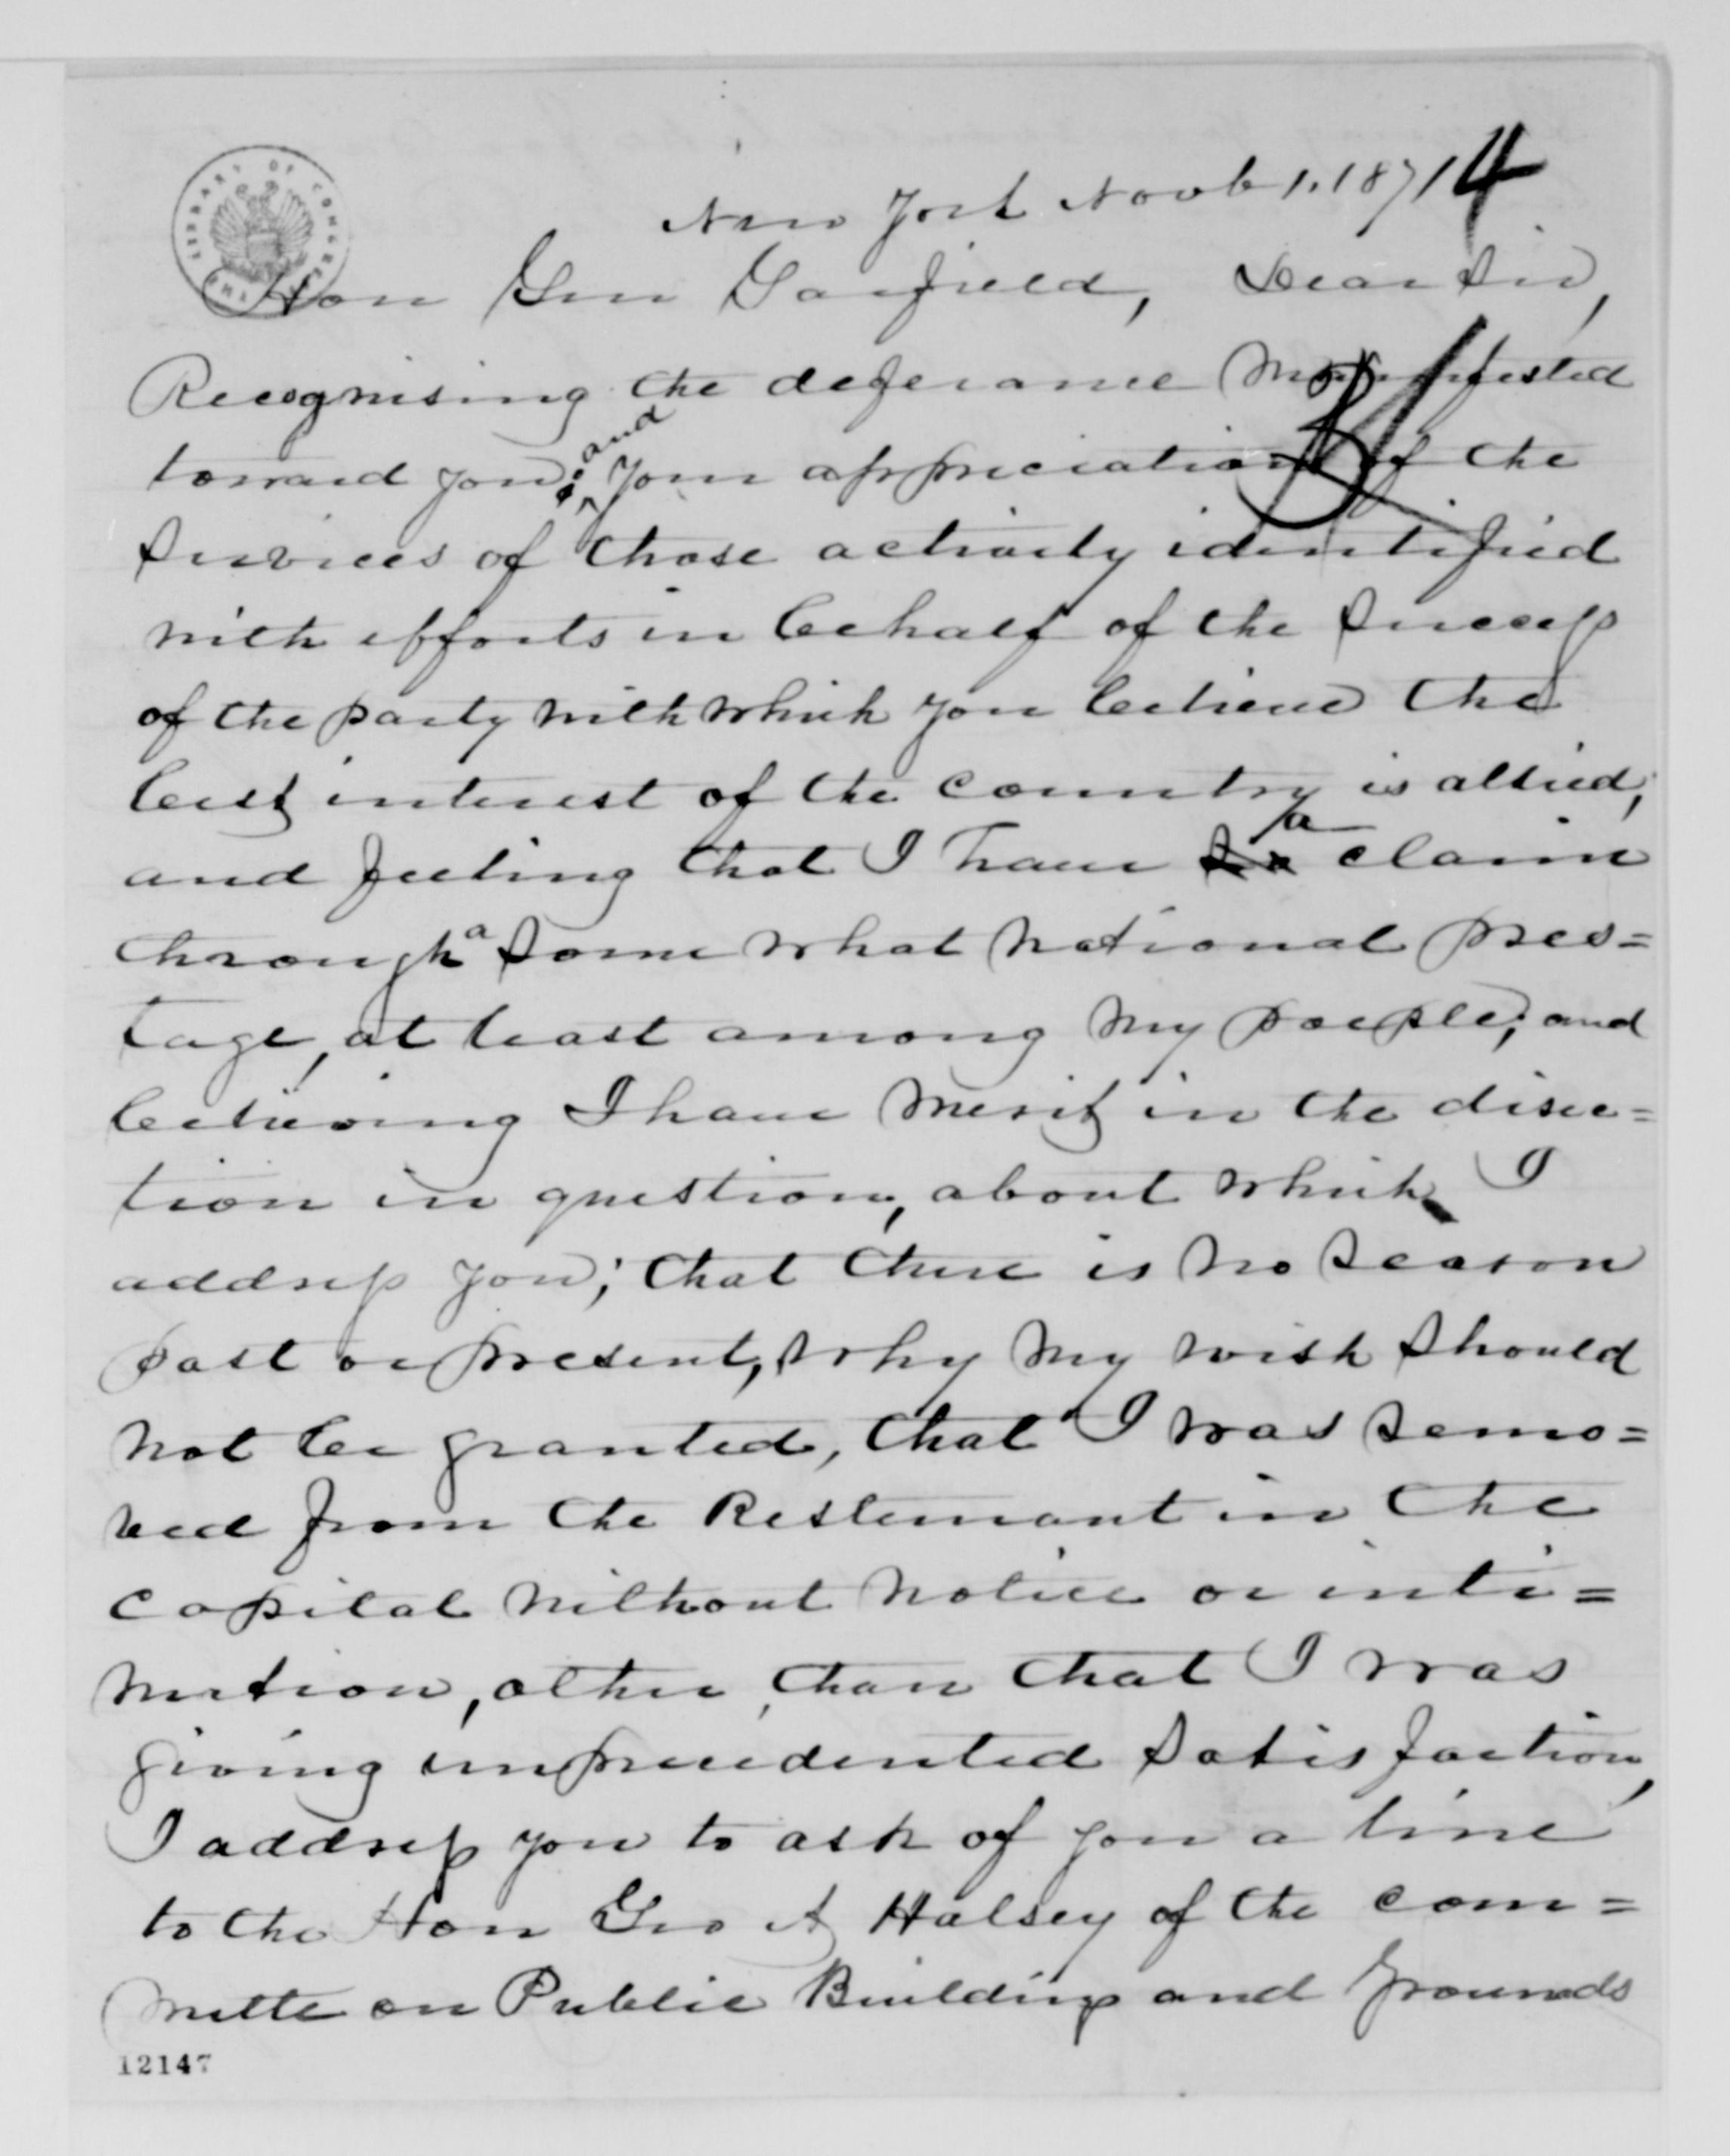 THE LIBRARY OF CONGRESS
New York Novb 1. 1871 4
Hon Gen Garfield, Dear Sir,
Recognising the deferance manifested
toward you; and your appreciation of the
Services of those activily identified
with efforts in behalf of the Success
of the party with which you believe the
best interest of the country is allied,
and feeling that I have a claim
through a some what national pres=
tage, at least among my poeple, and
believing I have merit in the direc=
tion in question, about which I
address you; that there is no reason
past or present, why my wish should
not be granted, that I was remo=
ved from the Resteraunt in the
capital without notice or inti=
mation, other than that I was
giving unprecidented satisfaction,
I address you to ask of you a line
to the Hon Geo A Halsey of the com=
mitte on Public Buildings and Grounds
12147